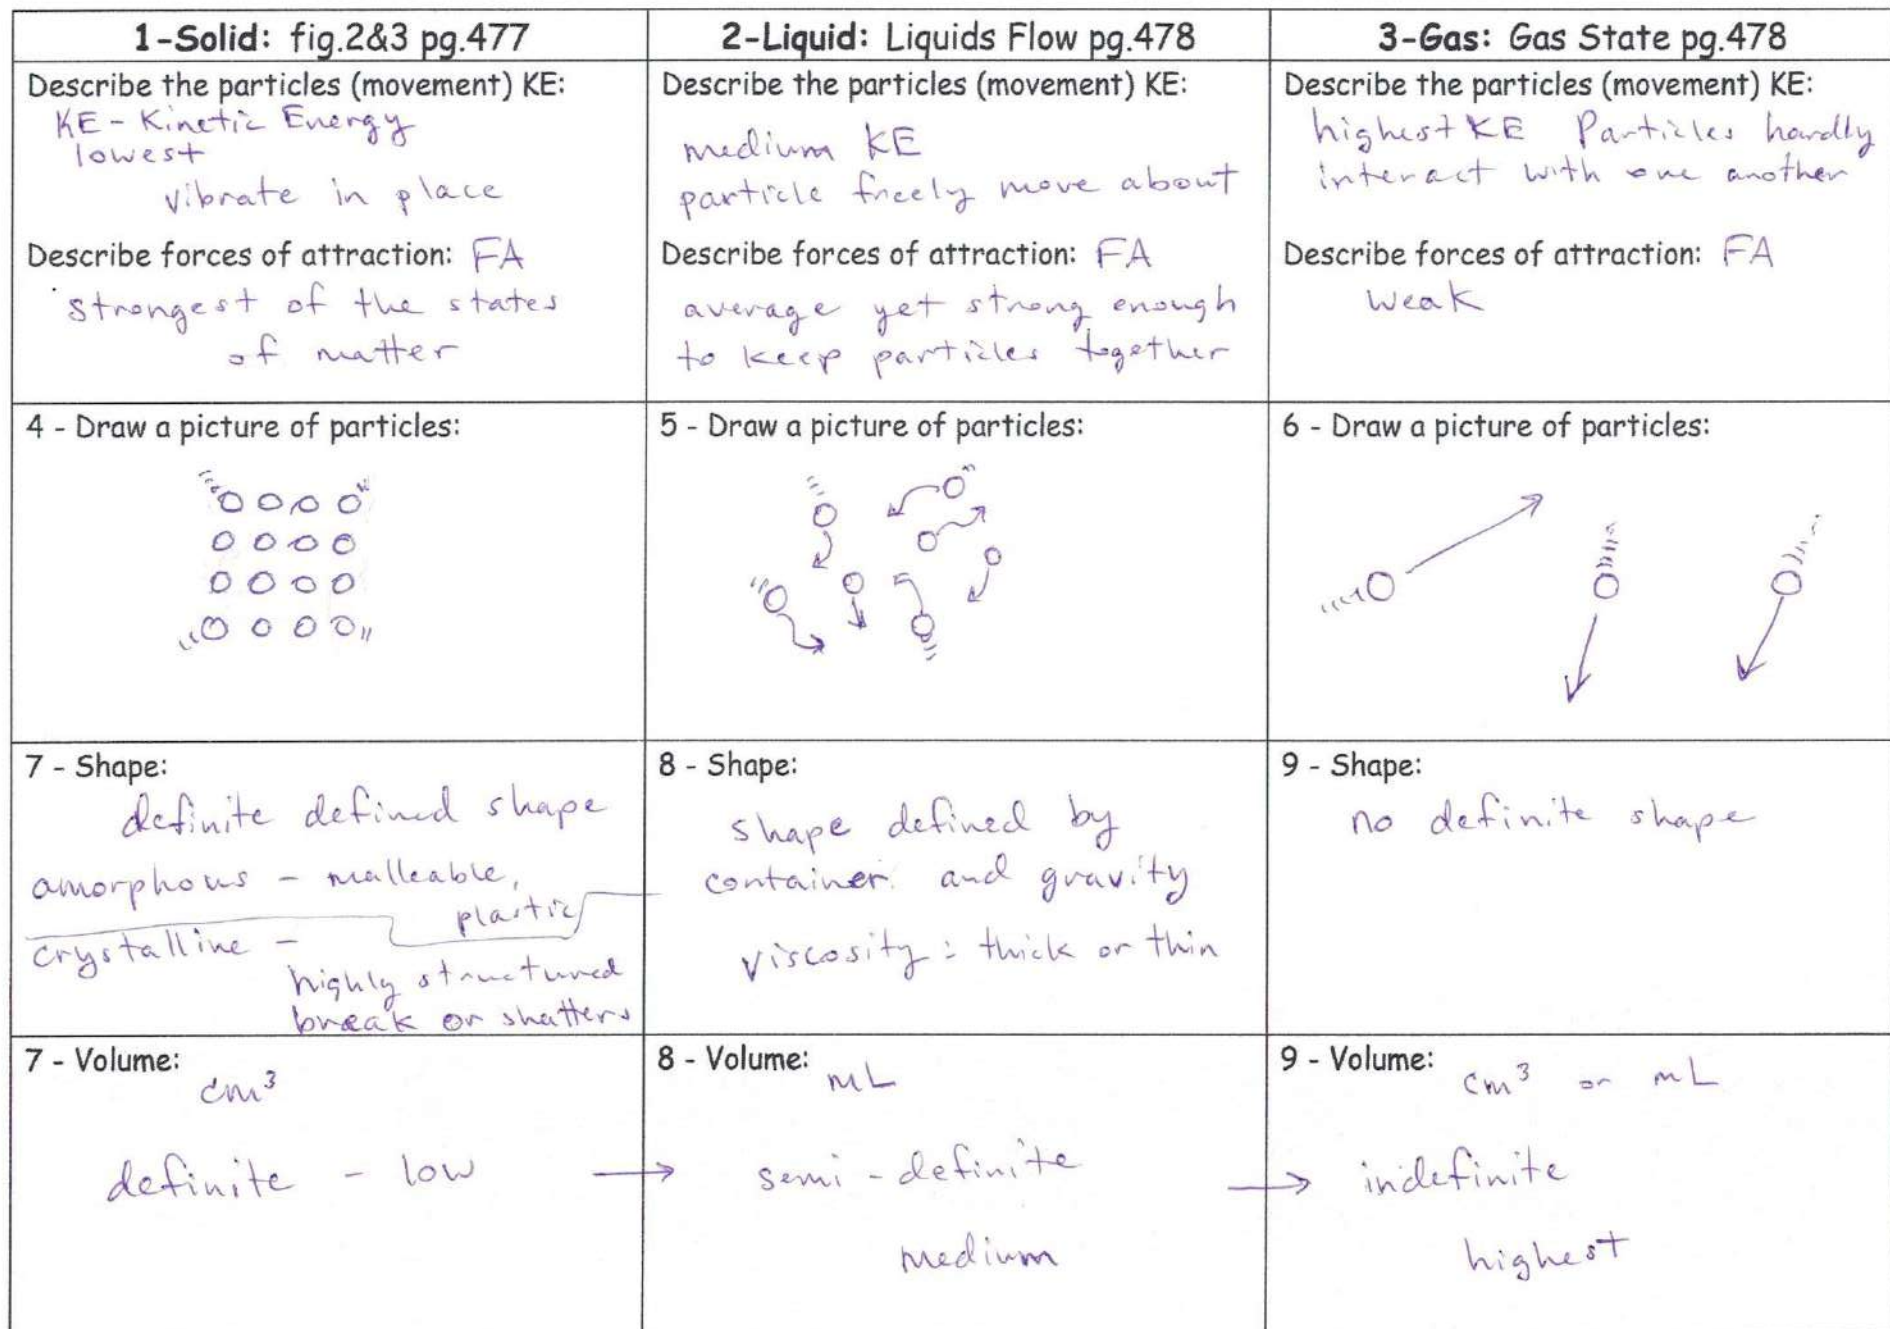 1-Solid: fig.2&3 pg.477
Describe the particles (movement) KE:
KE - Kinetic Energy
lowest
vibrate in place
Describe forces of attraction: FA
strongest of the states
of matter
2-Liquid: Liquids Flow pg.478
Describe the particles (movement) KE:
medium KE
particle freely move about
Describe forces of attraction: FA
average yet strong enough
to keep particles together
3-Gas: Gas State pg.478
Describe the particles (movement) KE:
highest KE Particles hardly
interact with one another
Describe forces of attraction: FA
weak
4 - Draw a picture of particles:
5 - Draw a picture of particles:
6 - Draw a picture of particles:
7 - Shape:
definite defined shape
amorphous - malleable,
plastic
crystalline -
highly structured
break or shatters
8 - Shape:
shape defined by
container and gravity
viscosity: thick or thin
9 - Shape:
no definite shape
7 - Volume:
cm³
definite - low →
8 - Volume:
mL
semi-definite →
medium
9 - Volume:
cm³ or mL
indefinite
highest